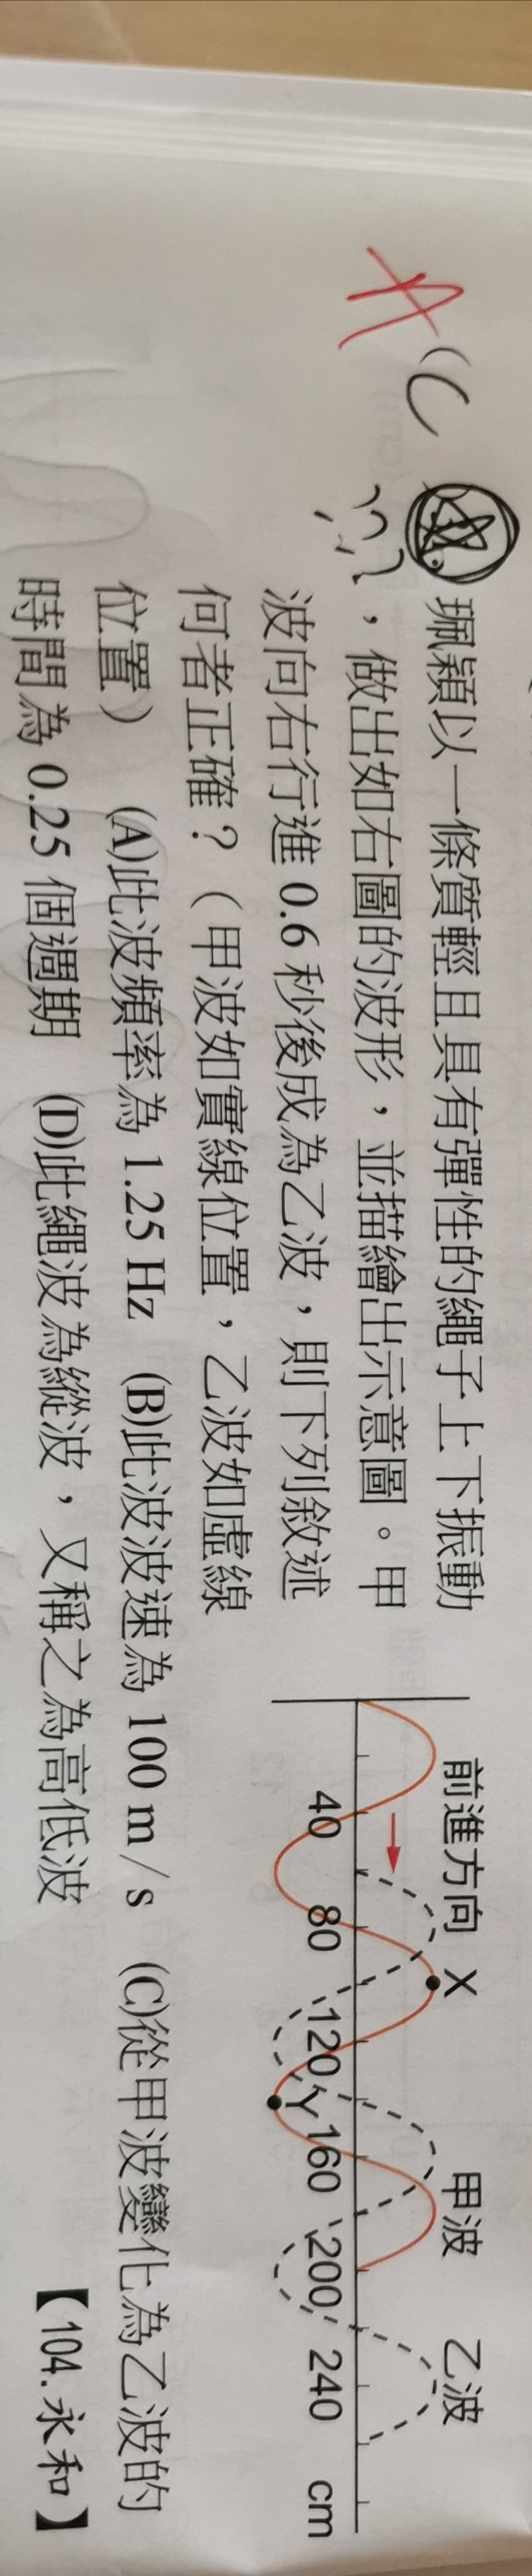 A
(C
珮穎以一條質輕且具有彈性的繩子上下振動
，做出如右圖的波形，並描繪出示意圖。甲
波向右行進 0.6 秒後成為乙波，則下列敘述
何者正確？（甲波如實線位置，乙波如虛線
位置） (A)此波頻率為 1.25 Hz (B)此波波速為 100 m／s (C)從甲波變化為乙波的
時間為 0.25 個週期 (D)此繩波為縱波，又稱之為高低波
【104.永和】
前進方向 X 甲波 乙波
40 80 120 Y 160 200 240 cm